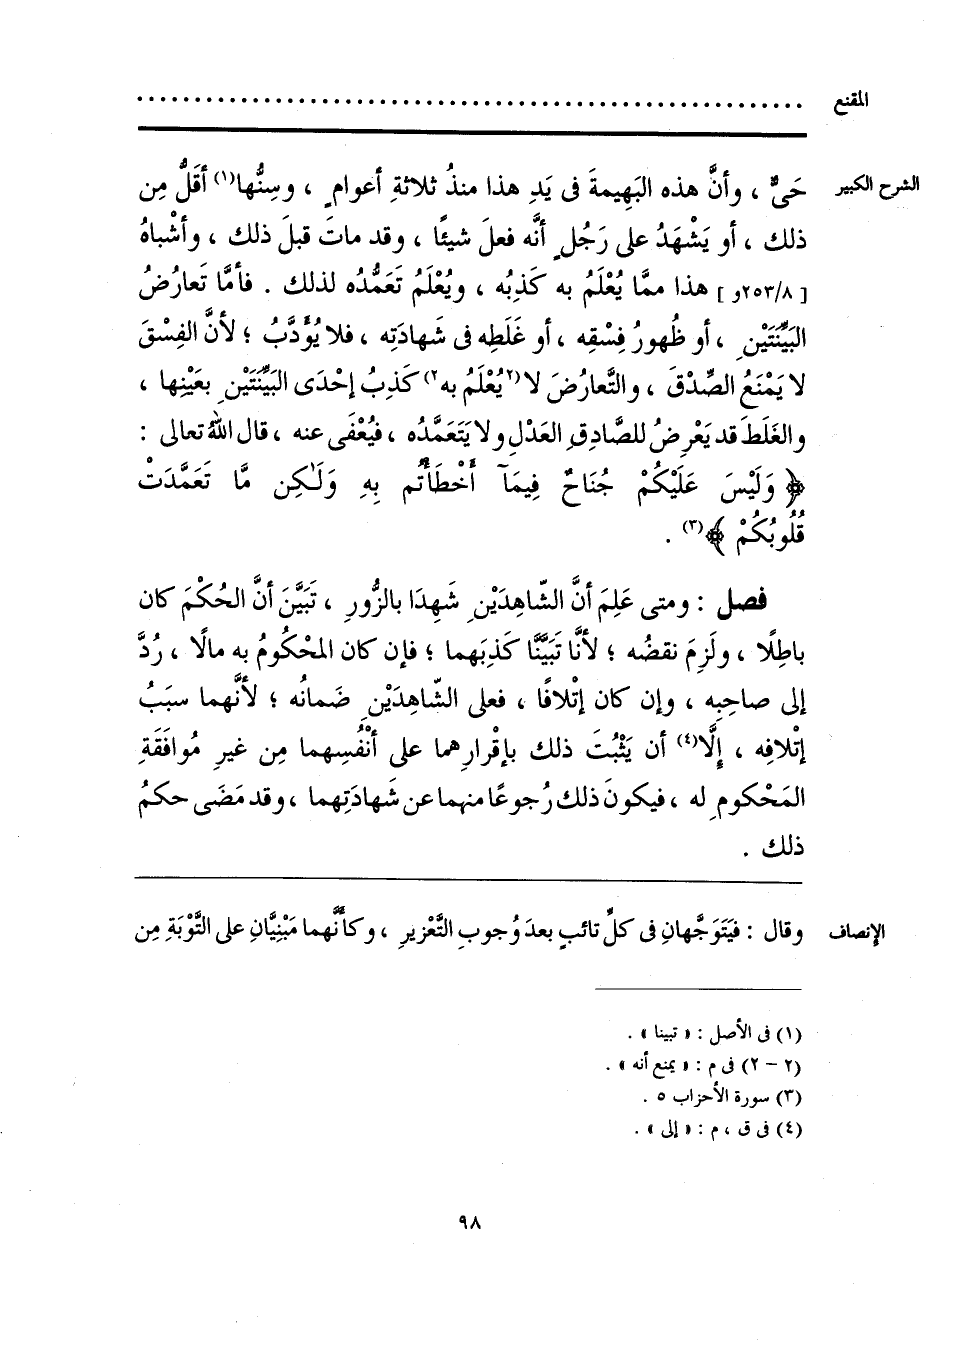 المقنع ........................................................
الشرح الكبير حَىٌّ ، وأنَّ هذه البَهِيمةَ فى يَدِ هذا منذُ ثلاثةِ أعوامٍ ، وسِنُّها(١) أقَلُّ مِن
ذلك ، أو يَشْهَدُ على رَجُلٍ أنَّه فعلَ شيئًا ، وقد ماتَ قبلَ ذلك ، وأشْباهُ
[ ٢٥٣/٨و ] هذا ممَّا يُعْلَمُ به كَذِبُه ، ويُعْلَمُ تَعَمُّدُه لذلك . فأمَّا تَعارُضُ
البَيِّنَتَيْنِ ، أو ظُهورُ فِسْقِه ، أو غَلَطِه فى شَهادَتِه ، فلا يُؤَدَّبُ ؛ لأنَّ الفِسْقَ
لا يَمْنَعُ الصِّدْقَ ، والتَّعارُضَ لا (٢يُعْلَمُ به٢) كَذِبُ إحْدَى البَيِّنَتَيْنِ بعَيْنِها ،
والغَلَطَ قد يَعْرِضُ للصَّادِقِ العَدْلِ ولا يَتَعَمَّدُه ، فيُعْفَى عنه ، قال اللهُ تعالى :
﴿ وَلَيْسَ عَلَيْكُمْ جُنَاحٌ فِيمَآ أَخْطَأْتُم بِهِ وَلَـٰكِن مَّا تَعَمَّدَتْ
قُلُوبُكُمْ ﴾(٣) .
فصل : ومتى عَلِمَ أنَّ الشّاهِدَيْنِ شَهِدَا بالزُّورِ ، تَبَيَّنَ أنَّ الحُكْمَ كان
باطِلًا ، ولَزِمَ نقضُه ؛ لأنَّا تَبَيَّنَّا كَذِبَهما ؛ فإن كان المَحْكُومُ به مالًا ، رُدَّ
إلى صاحِبِه ، وإن كان إتْلافًا ، فعلى الشّاهِدَيْنِ ضَمانُه ؛ لأنَّهما سبَبُ
إتْلافِه ، إلَّا(٤) أن يَثْبُتَ ذلك بإقْرارِهما على أنْفُسِهما مِن غيرِ مُوافَقَةِ
المَحْكومِ له ، فيكونَ ذلك رُجوعًا منهما عن شَهادَتِهما ، وقد مَضَى حكمُ
ذلك .
الإنصاف وقال : فيَتَوَجَّهانِ فى كلِّ تائبٍ بعدَ وُجوبِ التَّعْزيرِ ، وكأنَّهما مَبْنِيَّان على التَّوْبَةِ مِن
(١) فى الأصل : « تبينا » .
(٢ - ٢) فى م : « يمنع أنه » .
(٣) سورة الأحزاب ٥ .
(٤) فى ق ، م : « إلى » .
٩٨